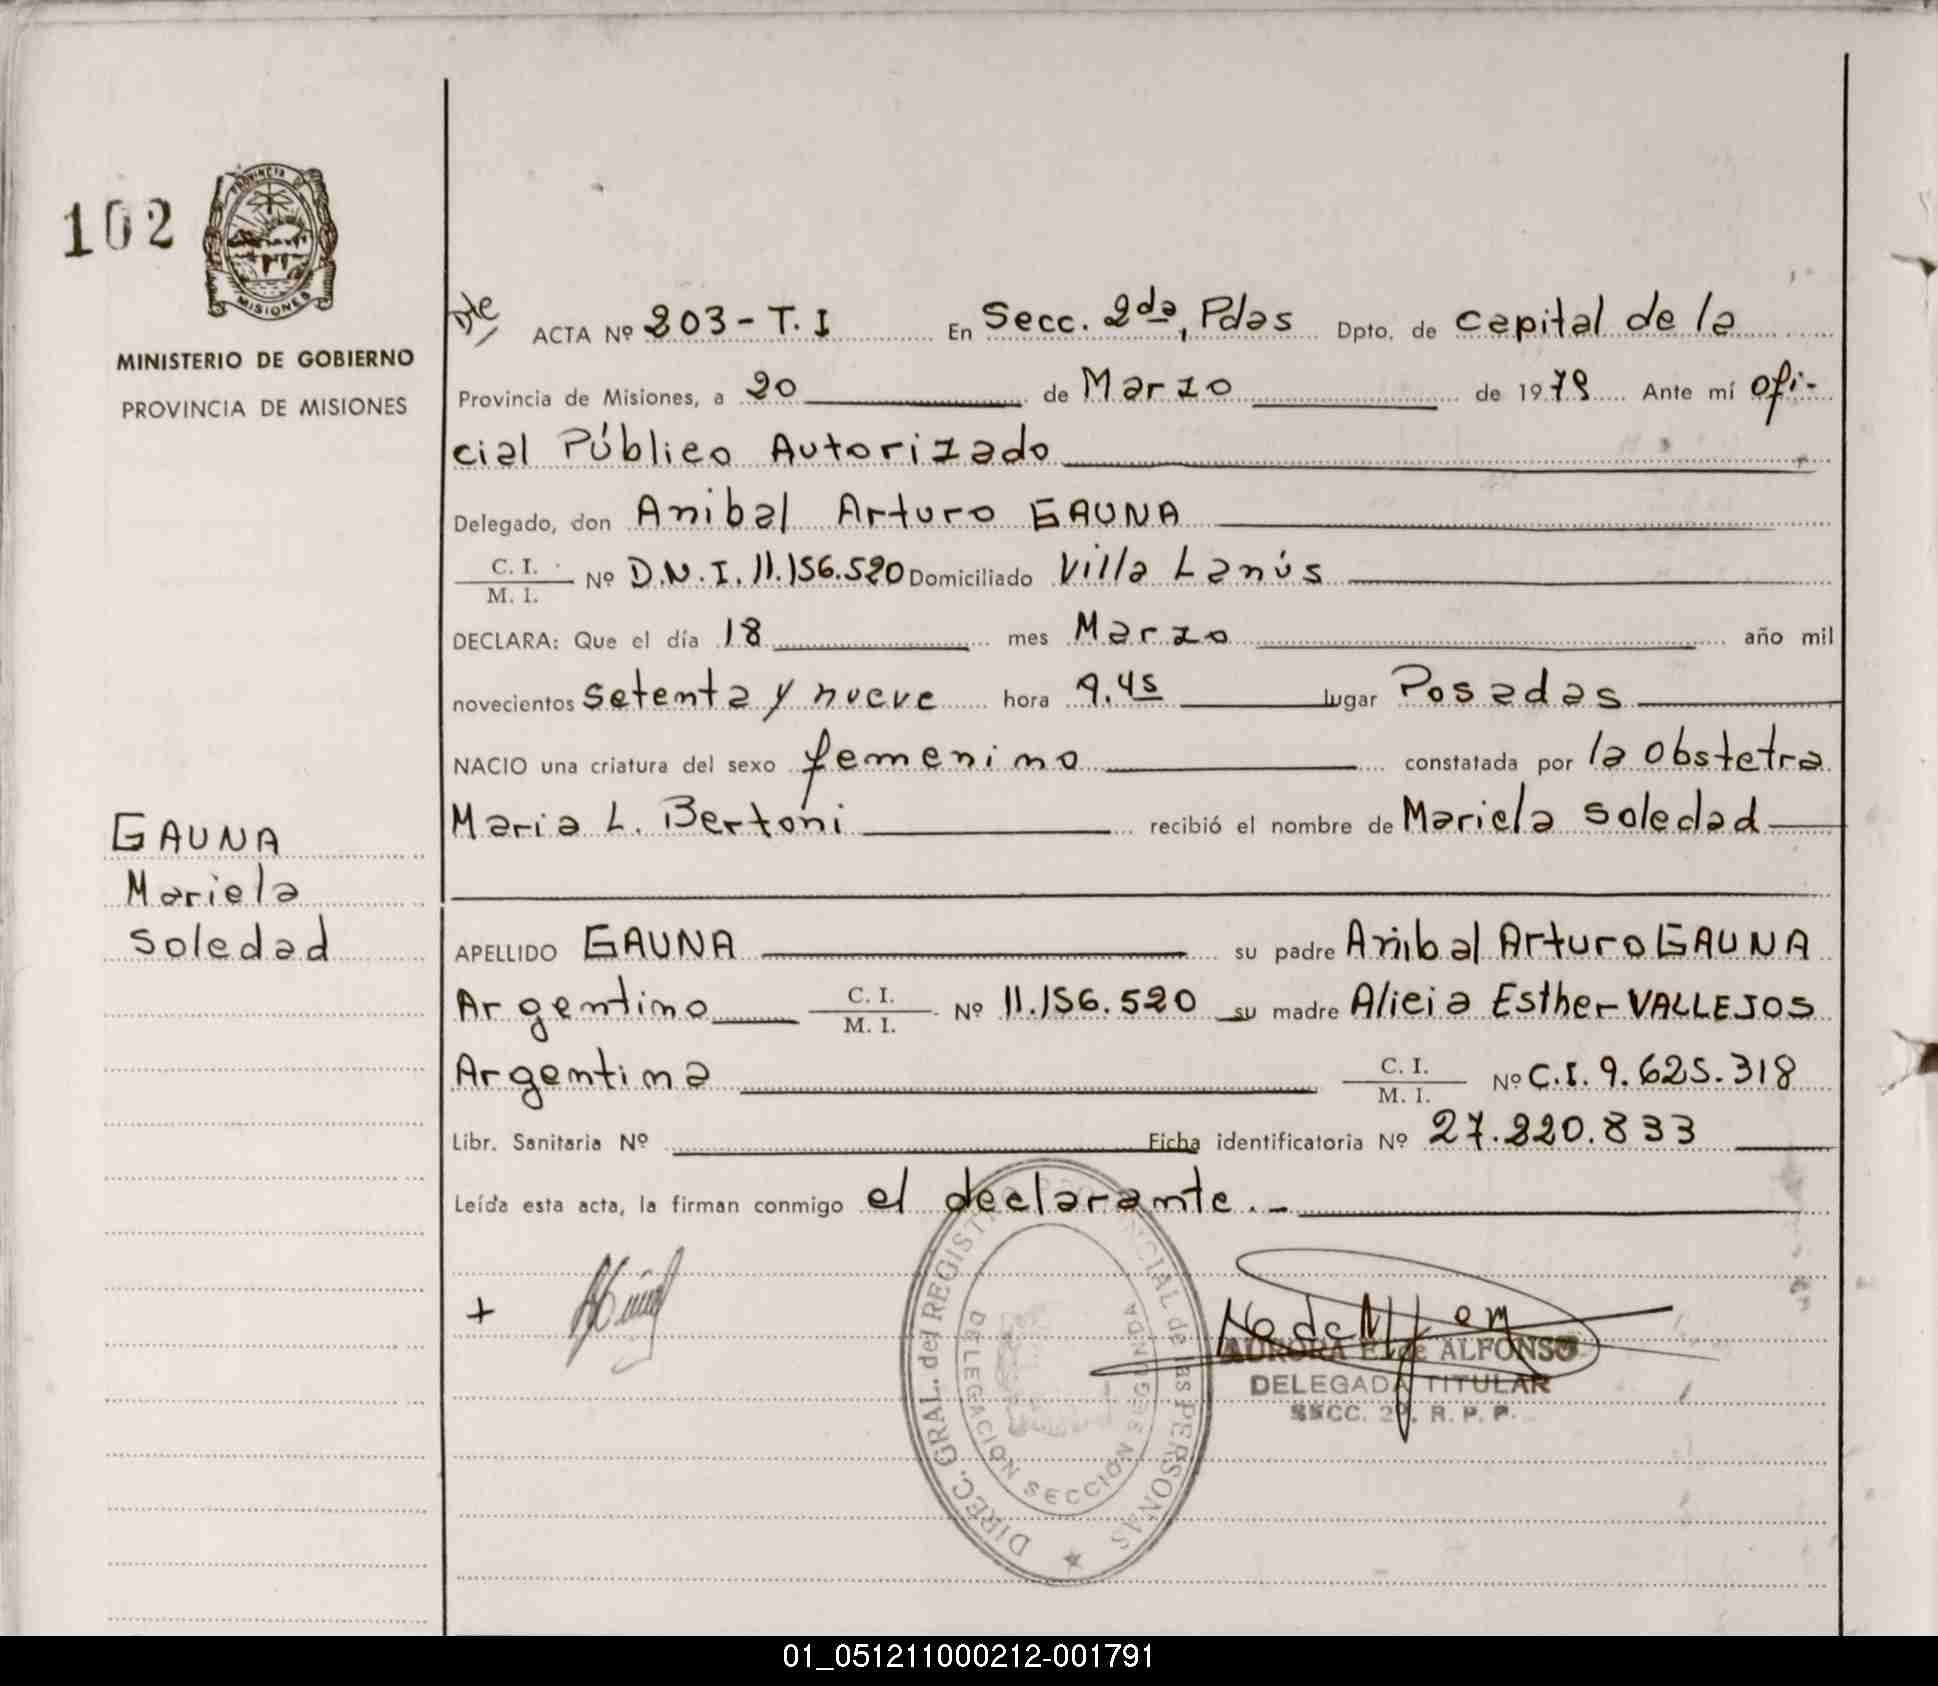 102
PROVINCIA DE
MISIONES
MINISTERIO DE GOBIERNO
PROVINCIA DE MISIONES
GAUNA
Mariela
Soledad
Dte ACTA Nº 203-T.I En Secc. 2da, Pdas Dpto. de Capital de la
Provincia de Misiones, a 20 de Marzo de 1979 Ante mí ofi-
cial Público Autorizado
Delegado, don Anibal Arturo GAUNA
C. I. / M. I. Nº D.N.I. 11.156.520 Domiciliado Villa Lanús
DECLARA: Que el día 18 mes Marzo año mil
novecientos setenta y nueve hora 9.45 lugar Posadas
NACIO una criatura del sexo femenino constatada por la obstetra
Maria L. Bertoni recibió el nombre de Mariela Soledad
APELLIDO GAUNA su padre Anibal Arturo GAUNA
Argentino C. I. / M. I. Nº 11.156.520 su madre Alicia Esther VALLEJOS
Argentina C. I. / M. I. Nº C.I. 9.625.318
Libr. Sanitaria Nº Ficha identificatoria Nº 27.220.833
Leída esta acta, la firman conmigo el declarante.-
+
DIREC. GRAL. del REGISTRO PROVINCIAL de las PERSONAS
DELEGACION SECCION SEGUNDA
AURORA E. de ALFONSO
DELEGADA TITULAR
SECC. 2ª. R. P. P.
01_051211000212-001791